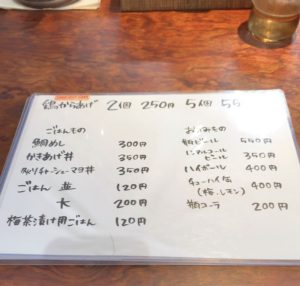 鶏からあげ 2個 250円 5個 55
ごはんもの
鯛めし 300円
かきあげ丼 350円
チャーシューマヨ丼 350円
ごはん 並 120円
大 200円
梅茶漬け用ごはん 120円
おのみもの
瓶ビール 550円
ノンアルコール
ビール 350円
ハイボール 400円
チューハイ缶 400円
(梅、レモン)
瓶コーラ 200円